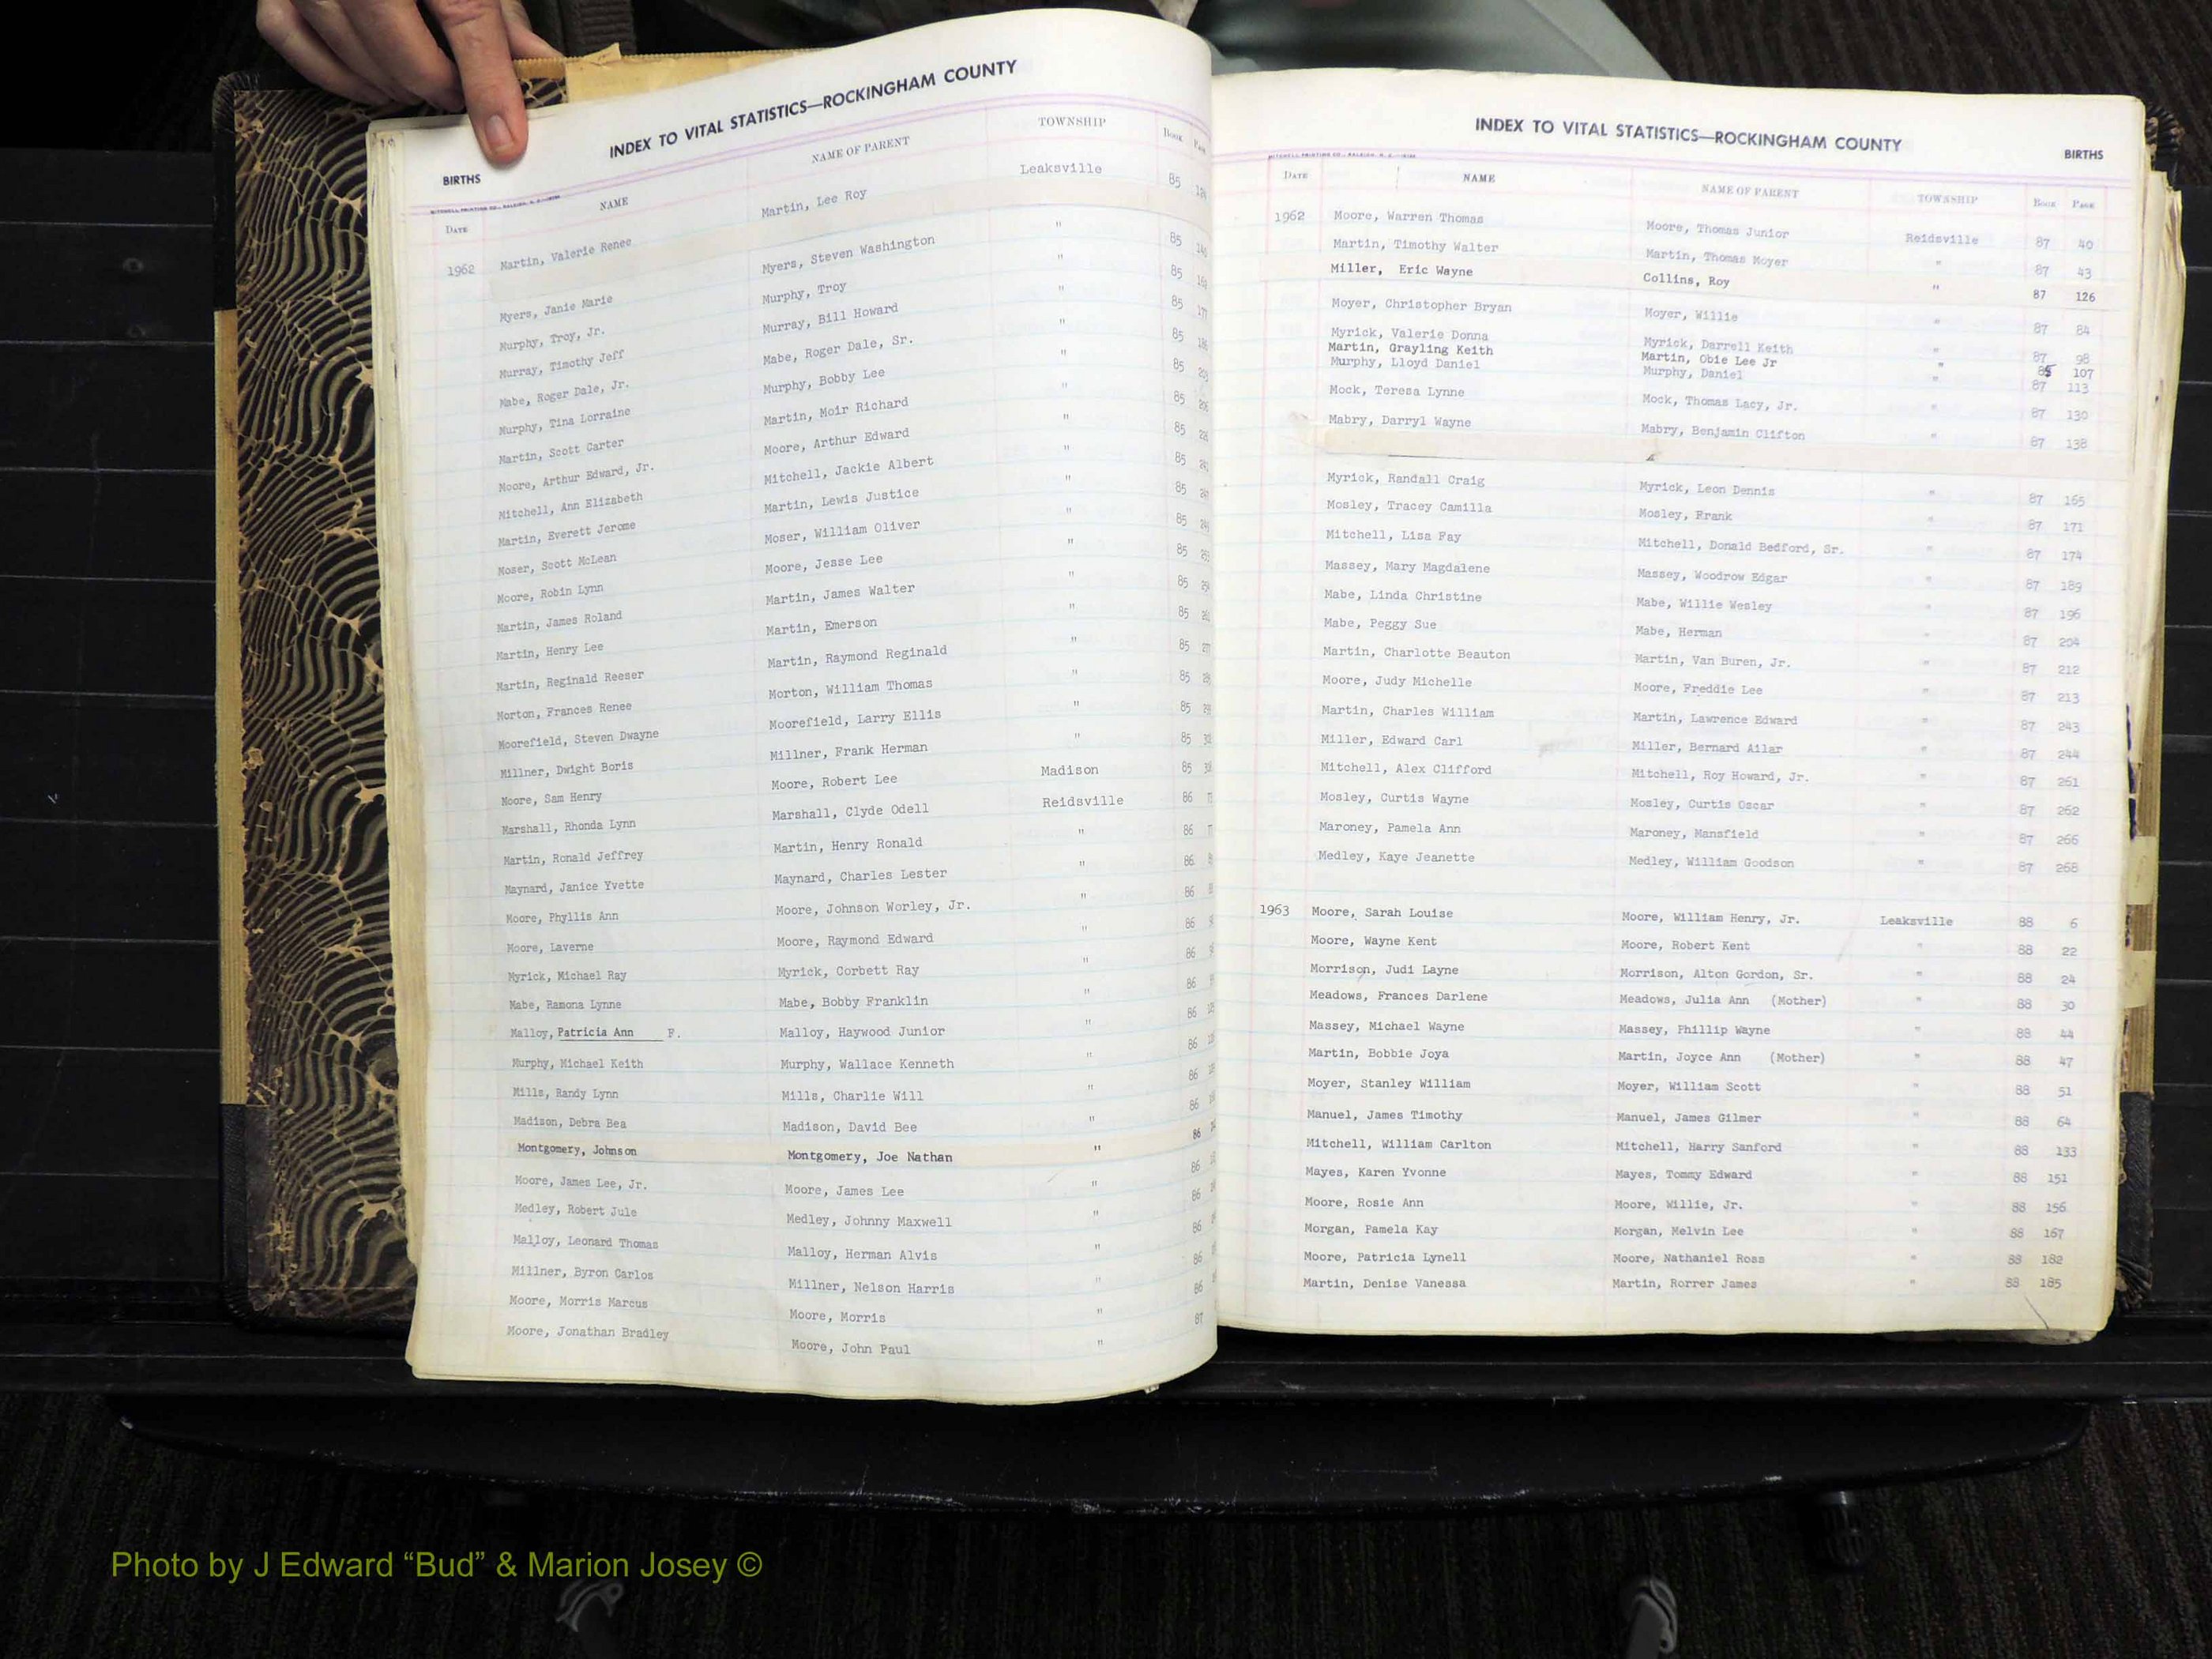 INDEX TO VITAL STATISTICS—ROCKINGHAM COUNTY
BIRTHS
DATE NAME NAME OF PARENT TOWNSHIP BOOK PAGE
1962 Martin, Valerie Renee Martin, Lee Roy Leaksville 85
Myers, Janie Marie Myers, Steven Washington " 85
Murphy, Troy, Jr. Murphy, Troy " 85
Murray, Timothy Jeff Murray, Bill Howard " 85
Mabe, Roger Dale, Jr. Mabe, Roger Dale, Sr. " 85
Murphy, Tina Lorraine Murphy, Bobby Lee " 85
Martin, Scott Carter Martin, Moir Richard " 85
Moore, Arthur Edward, Jr. Moore, Arthur Edward " 85
Mitchell, Ann Elizabeth Mitchell, Jackie Albert " 85
Martin, Everett Jerome Martin, Lewis Justice " 85
Moser, Scott McLean Moser, William Oliver " 85
Moore, Robin Lynn Moore, Jesse Lee " 85
Martin, James Roland Martin, James Walter " 85
Martin, Henry Lee Martin, Emerson " 85
Martin, Reginald Reeser Martin, Raymond Reginald " 85
Morton, Frances Renee Morton, William Thomas " 85
Moorefield, Steven Dwayne Moorefield, Larry Ellis " 85
Millner, Dwight Boris Millner, Frank Herman " 85
Moore, Sam Henry Moore, Robert Lee Madison 85
Marshall, Rhonda Lynn Marshall, Clyde Odell Reidsville 86
Martin, Ronald Jeffrey Martin, Henry Ronald " 86
Maynard, Janice Yvette Maynard, Charles Lester " 86
Moore, Phyllis Ann Moore, Johnson Worley, Jr. " 86
Moore, Laverne Moore, Raymond Edward " 86
Myrick, Michael Ray Myrick, Corbett Ray " 86
Mabe, Ramona Lynne Mabe, Bobby Franklin " 86
Malloy, Patricia Ann F. Malloy, Haywood Junior " 86
Murphy, Michael Keith Murphy, Wallace Kenneth " 86
Mills, Randy Lynn Mills, Charlie Will " 86
Madison, Debra Bea Madison, David Bee " 86
Montgomery, Johnson Montgomery, Joe Nathan " 86
Moore, James Lee, Jr. Moore, James Lee " 86
Medley, Robert Jule Medley, Johnny Maxwell " 86
Malloy, Leonard Thomas Malloy, Herman Alvis " 86
Millner, Byron Carlos Millner, Nelson Harris " 86
Moore, Morris Marcus Moore, Morris " 86
Moore, Jonathan Bradley Moore, John Paul " 87
INDEX TO VITAL STATISTICS—ROCKINGHAM COUNTY
BIRTHS
DATE NAME NAME OF PARENT TOWNSHIP BOOK PAGE
1962 Moore, Warren Thomas Moore, Thomas Junior Reidsville 87 40
Martin, Timothy Walter Martin, Thomas Moyer " 87 43
Miller, Eric Wayne Collins, Roy " 87 126
Moyer, Christopher Bryan Moyer, Willie " 87 84
Myrick, Valerie Donna Myrick, Darrell Keith " 87 98
Martin, Grayling Keith Martin, Obie Lee Jr " 107
Murphy, Lloyd Daniel Murphy, Daniel " 87 113
Mock, Teresa Lynne Mock, Thomas Lacy, Jr. " 87 130
Mabry, Darryl Wayne Mabry, Benjamin Clifton " 87 138
Myrick, Randall Craig Myrick, Leon Dennis " 87 165
Mosley, Tracey Camilla Mosley, Frank " 87 171
Mitchell, Lisa Fay Mitchell, Donald Bedford, Sr. " 87 174
Massey, Mary Magdalene Massey, Woodrow Edgar " 87 189
Mabe, Linda Christine Mabe, Willie Wesley " 87 196
Mabe, Peggy Sue Mabe, Herman " 87 204
Martin, Charlotte Beauton Martin, Van Buren, Jr. " 87 212
Moore, Judy Michelle Moore, Freddie Lee " 87 213
Martin, Charles William Martin, Lawrence Edward " 87 243
Miller, Edward Carl Miller, Bernard Ailar " 87 244
Mitchell, Alex Clifford Mitchell, Roy Howard, Jr. " 87 261
Mosley, Curtis Wayne Mosley, Curtis Oscar " 87 262
Maroney, Pamela Ann Maroney, Mansfield " 87 266
Medley, Kaye Jeanette Medley, William Goodson " 87 268
1963 Moore, Sarah Louise Moore, William Henry, Jr. Leaksville 88 6
Moore, Wayne Kent Moore, Robert Kent " 88 22
Morrison, Judi Layne Morrison, Alton Gordon, Sr. " 88 24
Meadows, Frances Darlene Meadows, Julia Ann (Mother) " 88 30
Massey, Michael Wayne Massey, Phillip Wayne " 88 44
Martin, Bobbie Joya Martin, Joyce Ann (Mother) " 88 47
Moyer, Stanley William Moyer, William Scott " 88 51
Manuel, James Timothy Manuel, James Gilmer " 88 64
Mitchell, William Carlton Mitchell, Harry Sanford " 88 133
Mayes, Karen Yvonne Mayes, Tommy Edward " 88 151
Moore, Rosie Ann Moore, Willie, Jr. " 88 156
Morgan, Pamela Kay Morgan, Melvin Lee " 88 167
Moore, Patricia Lynell Moore, Nathaniel Ross " 88 182
Martin, Denise Vanessa Martin, Rorrer James " 88 185
Photo by J Edward “Bud” & Marion Josey ©